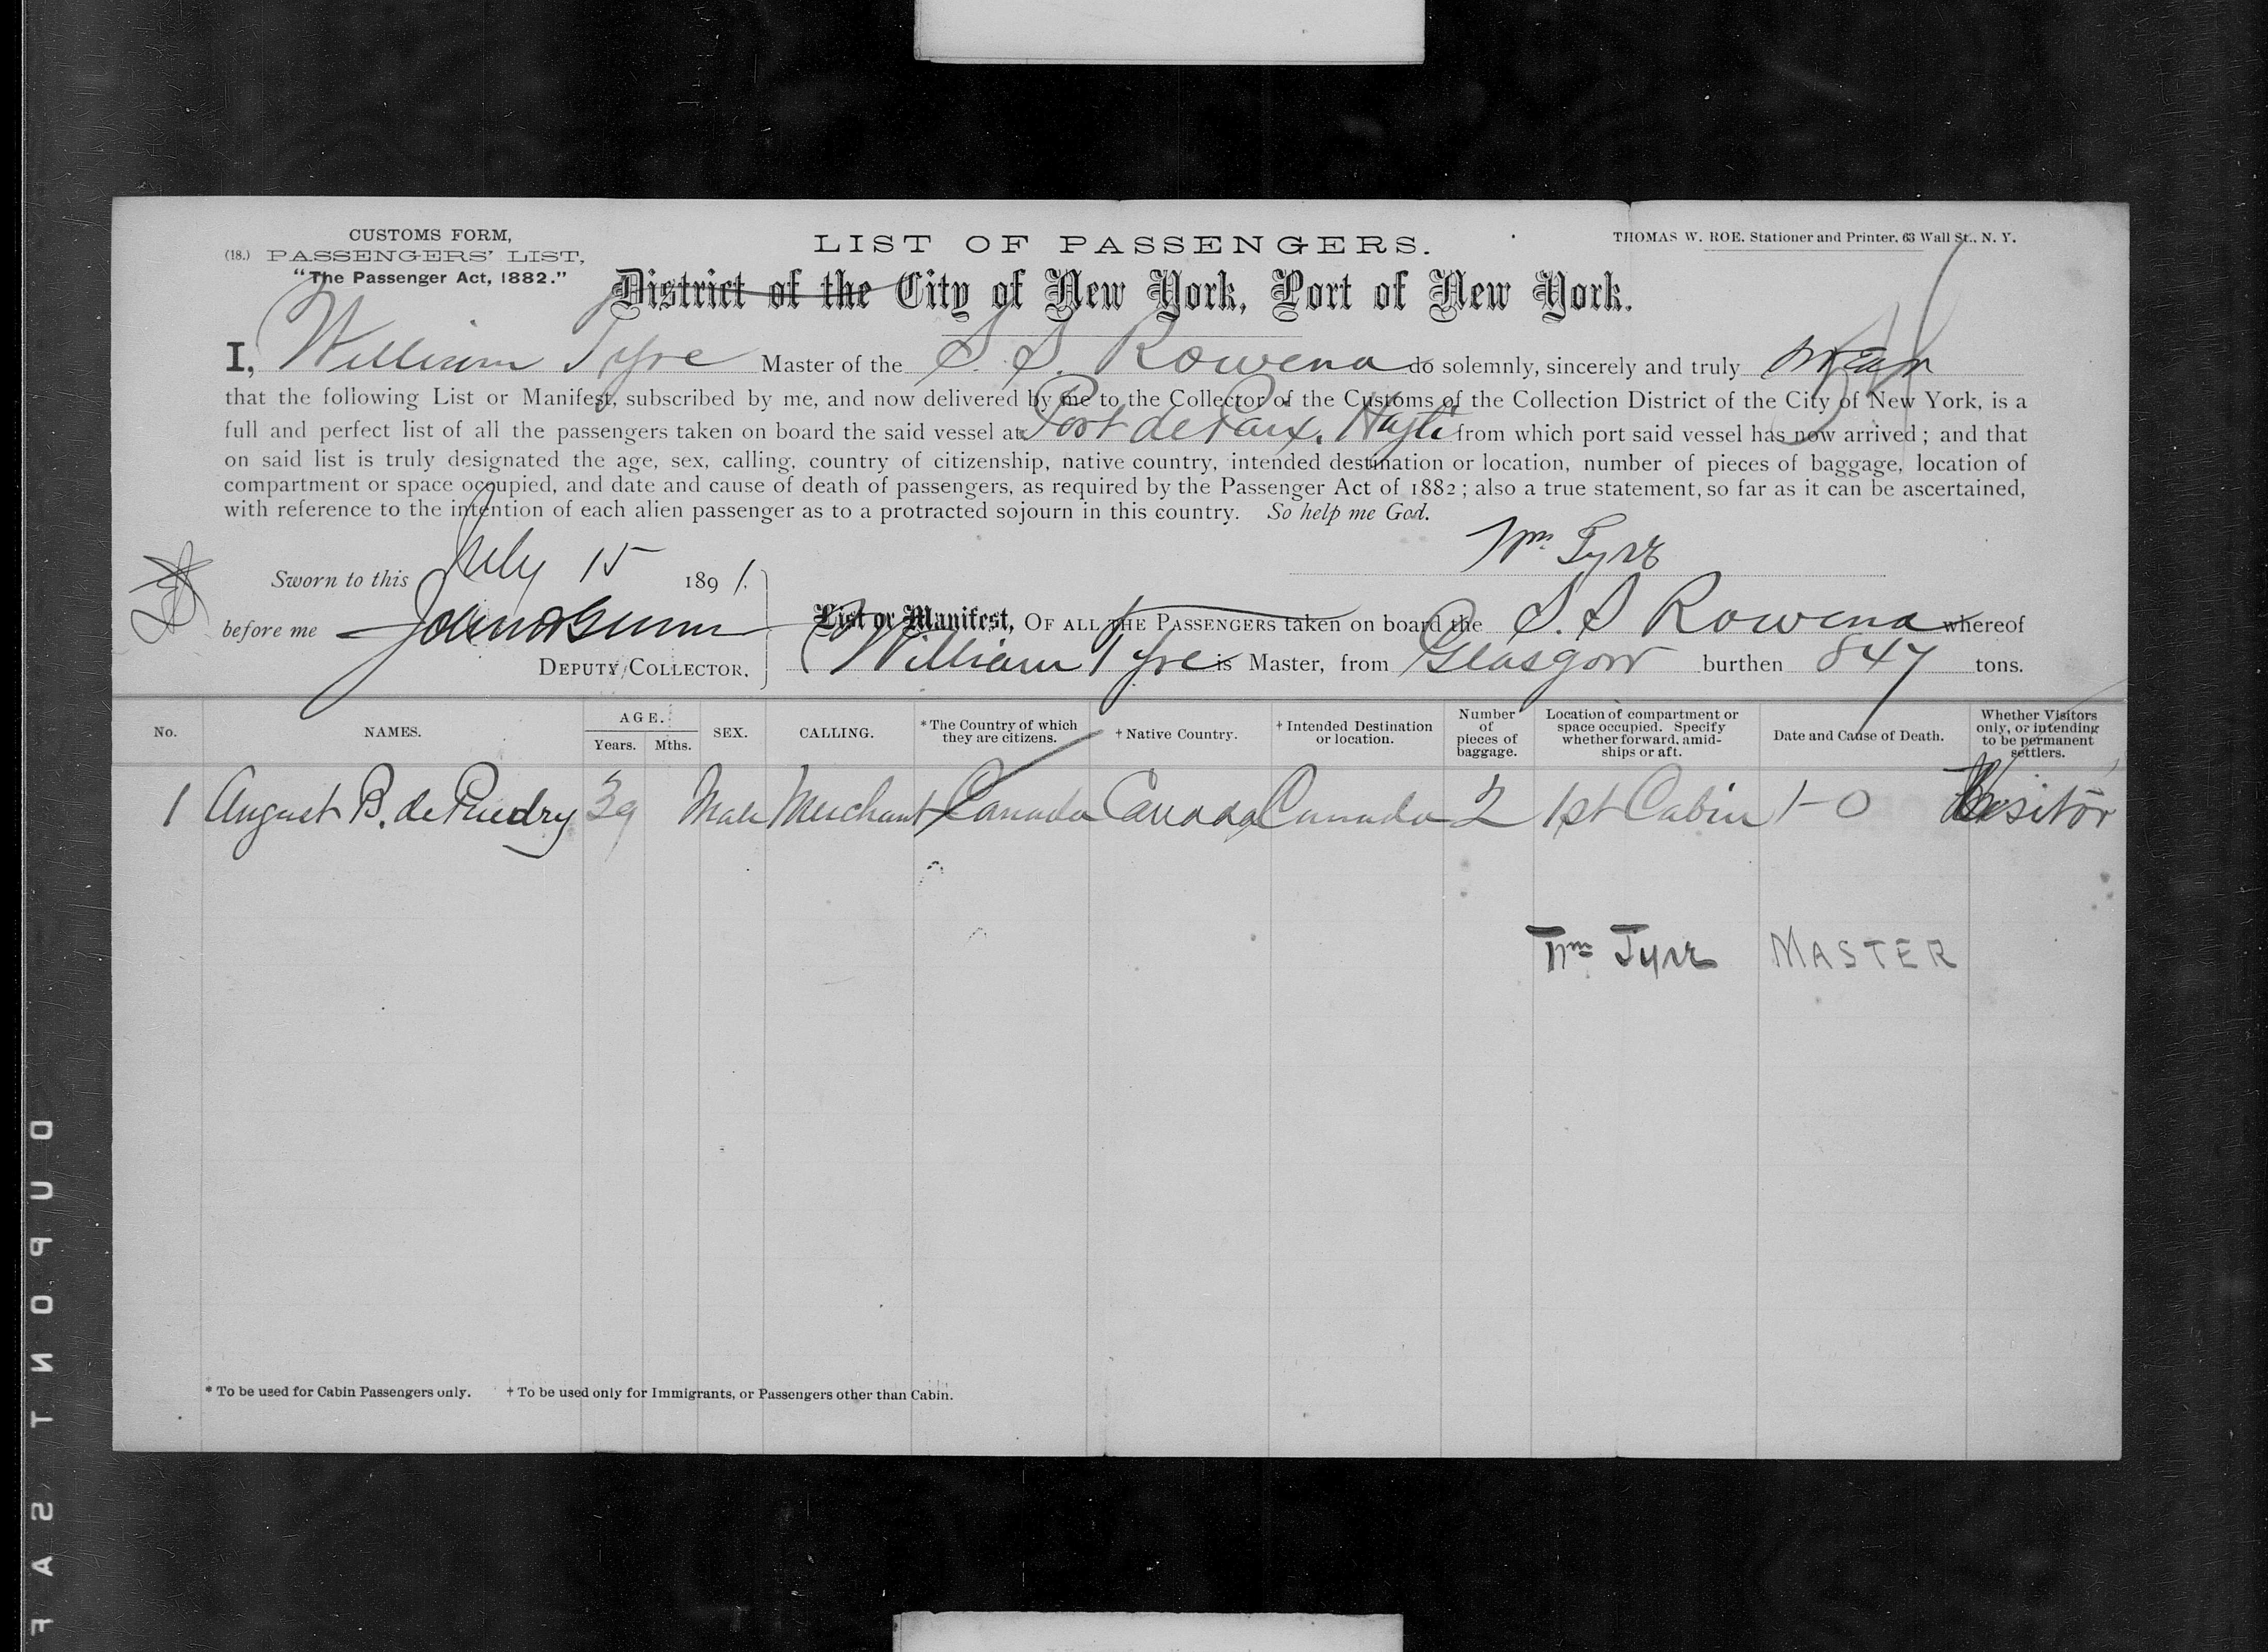 CUSTOMS FORM,
(18.) PASSENGERS' LIST,
"The Passenger Act, 1882."
LIST OF PASSENGERS.
THOMAS W. ROE, Stationer and Printer, 63 Wall St., N. Y.
District of the City of New York, Port of New York.
I, William Tyre Master of the S. S. Rowena do solemnly, sincerely and truly swear
that the following List or Manifest, subscribed by me, and now delivered by me to the Collector of the Customs of the Collection District of the City of New York, is a
full and perfect list of all the passengers taken on board the said vessel at Port de Paix, Hayti from which port said vessel has now arrived; and that
on said list is truly designated the age, sex, calling, country of citizenship, native country, intended destination or location, number of pieces of baggage, location of
compartment or space occupied, and date and cause of death of passengers, as required by the Passenger Act of 1882; also a true statement, so far as it can be ascertained,
with reference to the intention of each alien passenger as to a protracted sojourn in this country. So help me God.
Wm Tyre
Sworn to this July 15 1891.
before me
DEPUTY COLLECTOR.
List or Manifest, OF ALL THE PASSENGERS taken on board the S. S Rowena whereof
William Tyre is Master, from Glasgow burthen 847 tons.
No. NAMES. AGE. Years. Mths. SEX. CALLING. *The Country of which they are citizens. †Native Country. †Intended Destination or location. Number of pieces of baggage. Location of compartment or space occupied. Specify whether forward, amidships or aft. Date and Cause of Death. Whether Visitors only, or intending to be permanent settlers.
1 August B. de 39 Male Merchant Canada Canada Canada 2 1st Cabin 1-0 Visitor
Wm Tyre MASTER
* To be used for Cabin Passengers only. † To be used only for Immigrants, or Passengers other than Cabin.
DUPONT SAF